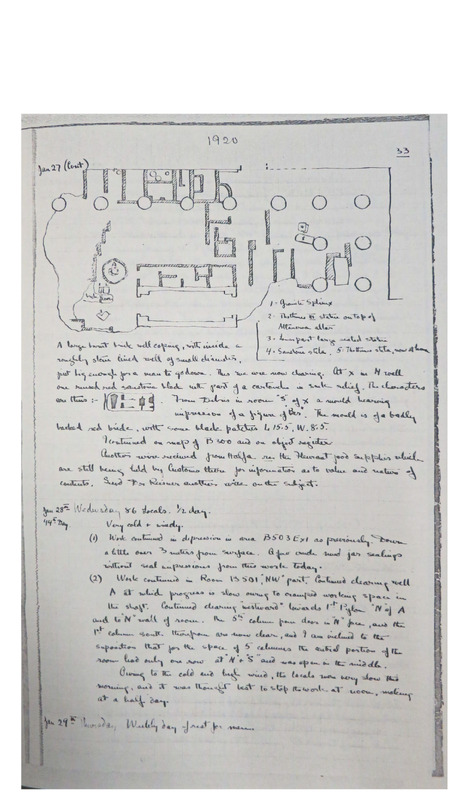 1920
33
Jan 27 (Cont)
1 - Granite Sphinx
2 - Thotmes III statue on top of
Altar
3 - lower part large seated statue
4 - Sandstone stela. 5. Thotmes stela, now at home
A large burnt brick well coping, with inside a
roughly stone lined well of small diameter,
just big enough for a man to go down. This we are now clearing. At x in N wall
one reused red sandstone block with part of a cartouche in sunk relief. The characters
are this :- From Debris in room "S" of x a mould bearing
impression of a figure of "Bes". The mould is of badly
baked red brick, with some black patches L. 15.5, W. 8.5.
Continued on map of B 500 and on object register
Another wire received from Halfa re. the food supplies which
are still being held by Customs there for information as to value and nature of
contents. Send Dr Reisner another wire on the subject.
Jan 28th Wednesday 86 locals. 1/2 day.
44th Day Very cold & windy.
(1) Work continued in depression in area B503 Ext as previously. Down
a little over 3 meters from surface. A few crude mud jar sealings
without seal impressions from this work today.
(2) Work continued in Room B 501, "NW" part. Continued clearing well
A at which progress is slow owing to cramped working space in
the shaft. Continued clearing northward towards 1st Pylon "N" of A
and to "N" wall of room. The 5th column from door in "N" face, and the
1st column south therefrom are now clear, and I am inclined to the
supposition that for the space of 5 columns the central portion of the
room had only one row at "N" & "S" and was open in the middle.
Owing to the cold and high wind, the locals were very slow this
morning, and it was thought best to stop the work at noon, making
it a half day.
Jan 29th Thursday Weekly day of rest for men.